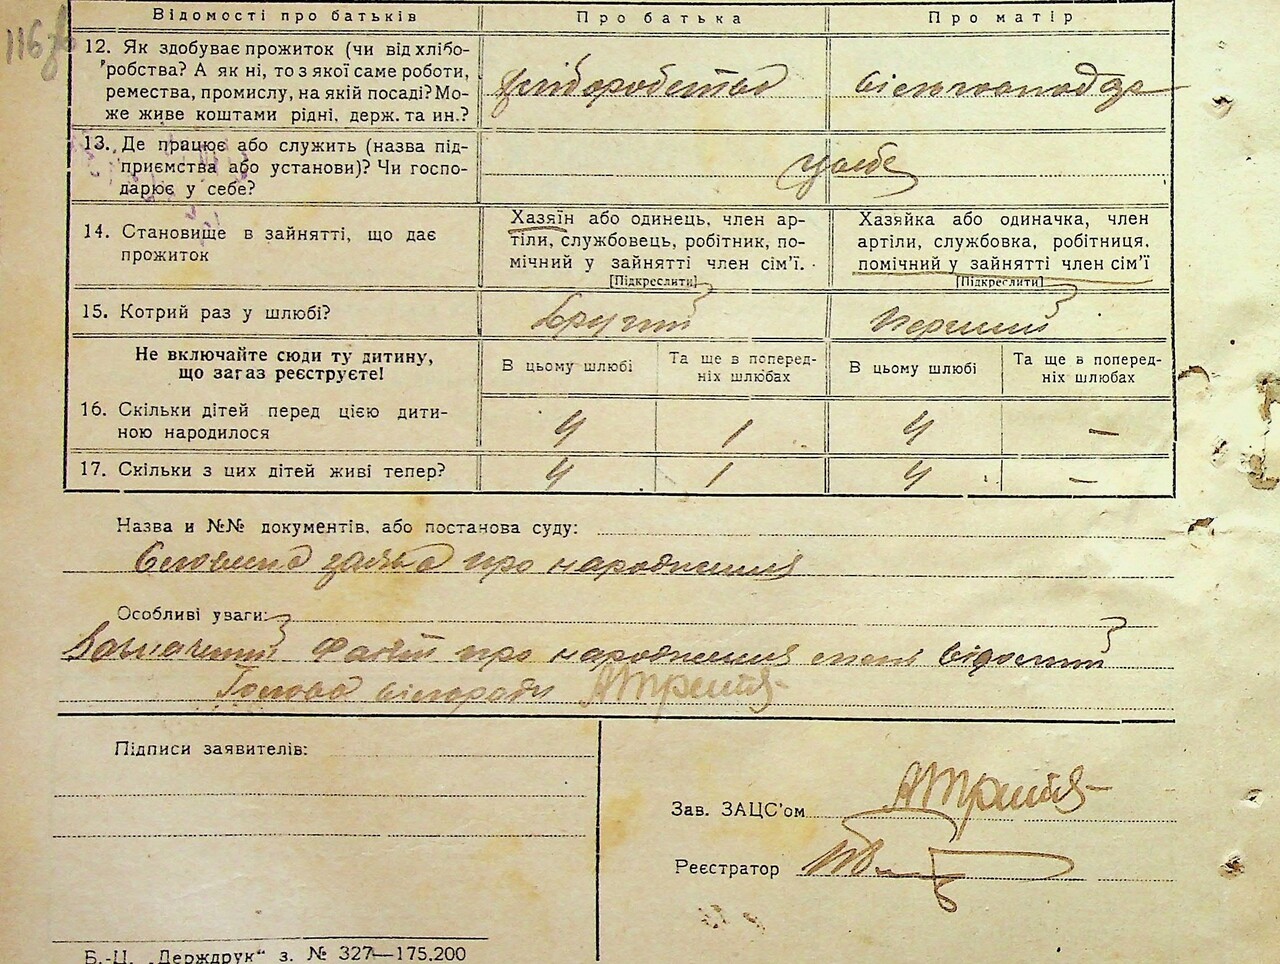 116зв
Відомості про батьків
Про батька
Про матір
12. Як здобуває прожиток (чи від хлібо-
робства? А як ні, то з якої саме роботи,
ремества, промислу, на якій посаді? Мо-
же живе коштами рідні, держ. та ин.?
хліборобство
13. Де працює або служить (назва під-
приємства або установи)? Чи госпо-
дарює у себе?
14. Становище в зайнятті, що дає
прожиток
Хазяїн або одинець, член ар-
тіли, службовець, робітник, по-
мічний у зайнятті член сім'ї.
[Підкреслити]
Хазяйка або одиначка, член
артіли, службовка, робітниця.
помічний у зайнятті член сім'ї
[Підкреслити]
15. Котрий раз у шлюбі?
Другий
Перший
Не включайте сюди ту дитину,
що загаз реєструєте!
В цьому шлюбі
Та ще в поперед-
ніх шлюбах
В цьому шлюбі
Та ще в поперед-
ніх шлюбах
16. Скільки дітей перед цією дити-
ною народилося
4 1 4 —
17. Скільки з цих дітей живі тепер?
4 1 4 —
Назва и №№ документів, або постанова суду:
Словесна заява про народження
Особливі уваги:
Зазначений факт про народження мені відомий
Голова сільради
Підписи заявителів:
Зав. ЗАЦС'ом
Реєстратор
Б.-Ц. „Держдрук" з. № 327—175.200